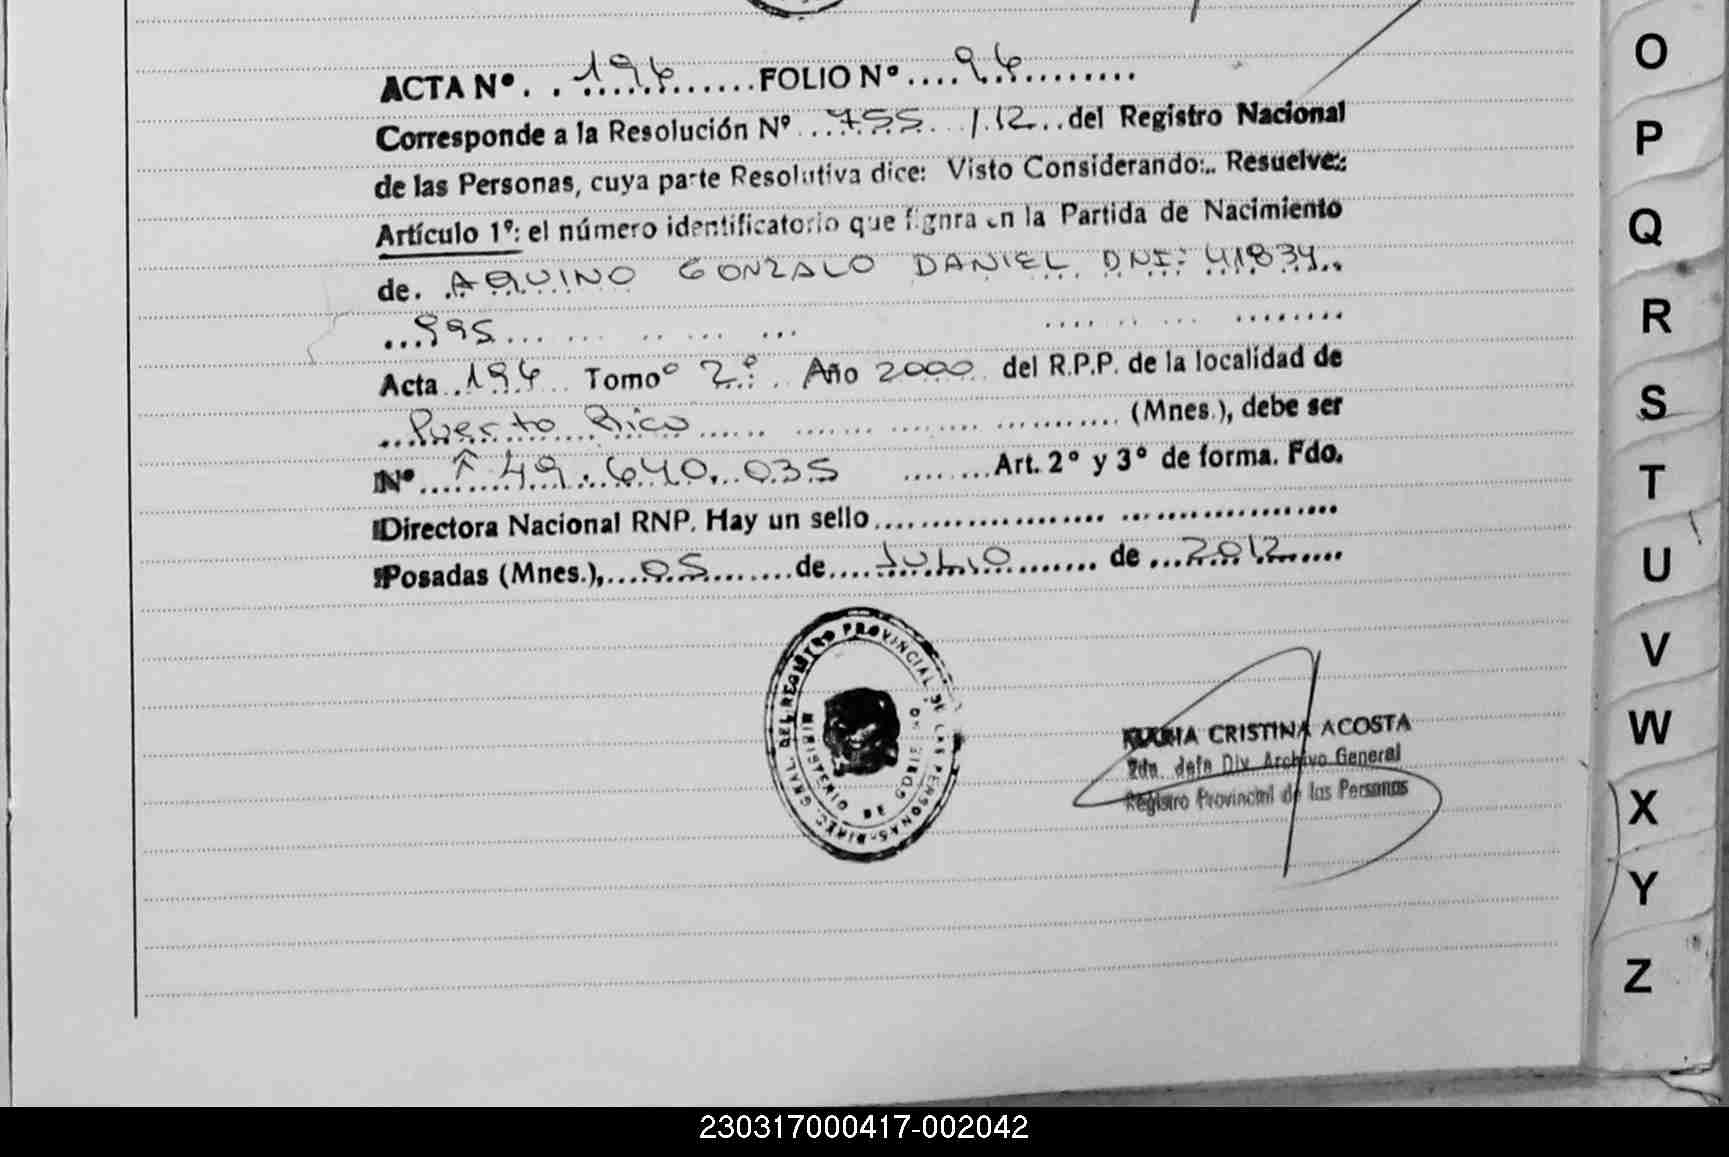 ACTA Nº. . .196.......... FOLIO Nº ....96..........
Corresponde a la Resolución Nº ...755. /.12...del Registro Nacional
de las Personas, cuya parte Resolutiva dice: Visto Considerando:.. Resuelve:
Artículo 1º: el número identificatorio que fignra en la Partida de Nacimiento
de. AQUINO GONZALO DANIEL DNI: 41834..
...995.... .. ... ...
Acta..196.. Tomoº 2º. Año 2000 del R.P.P. de la localidad de
...Puerto Rico...... ........ (Mnes.), debe ser
Nº.... 49.640.035 ........Art. 2º y 3º de forma. Fdo.
Directora Nacional RNP. Hay un sello....................
Posadas (Mnes.),...05........de....JULIO........ de ...2012......
DIREC. GRAL. DEL REGISTRO PROVINCIAL DE LAS PERSONAS
MINISTERIO DE GOBIERNO
MARIA CRISTINA ACOSTA
2da. Jefe Div. Archivo General
Registro Provincial de las Personas
O
P
Q
R
S
T
U
V
W
X
Y
Z
230317000417-002042